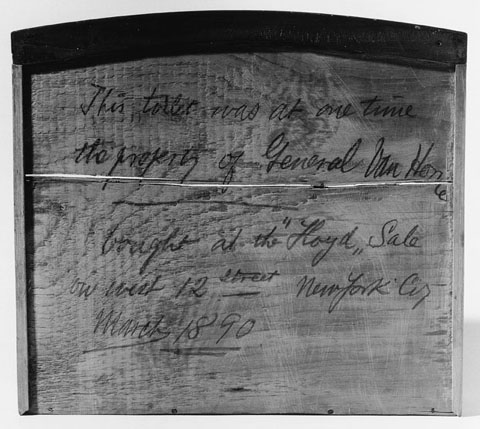 This toilet was at one time
the property of General Van Horne
bought at the "Floyd" Sale
on west 12 street New York City
March 1890